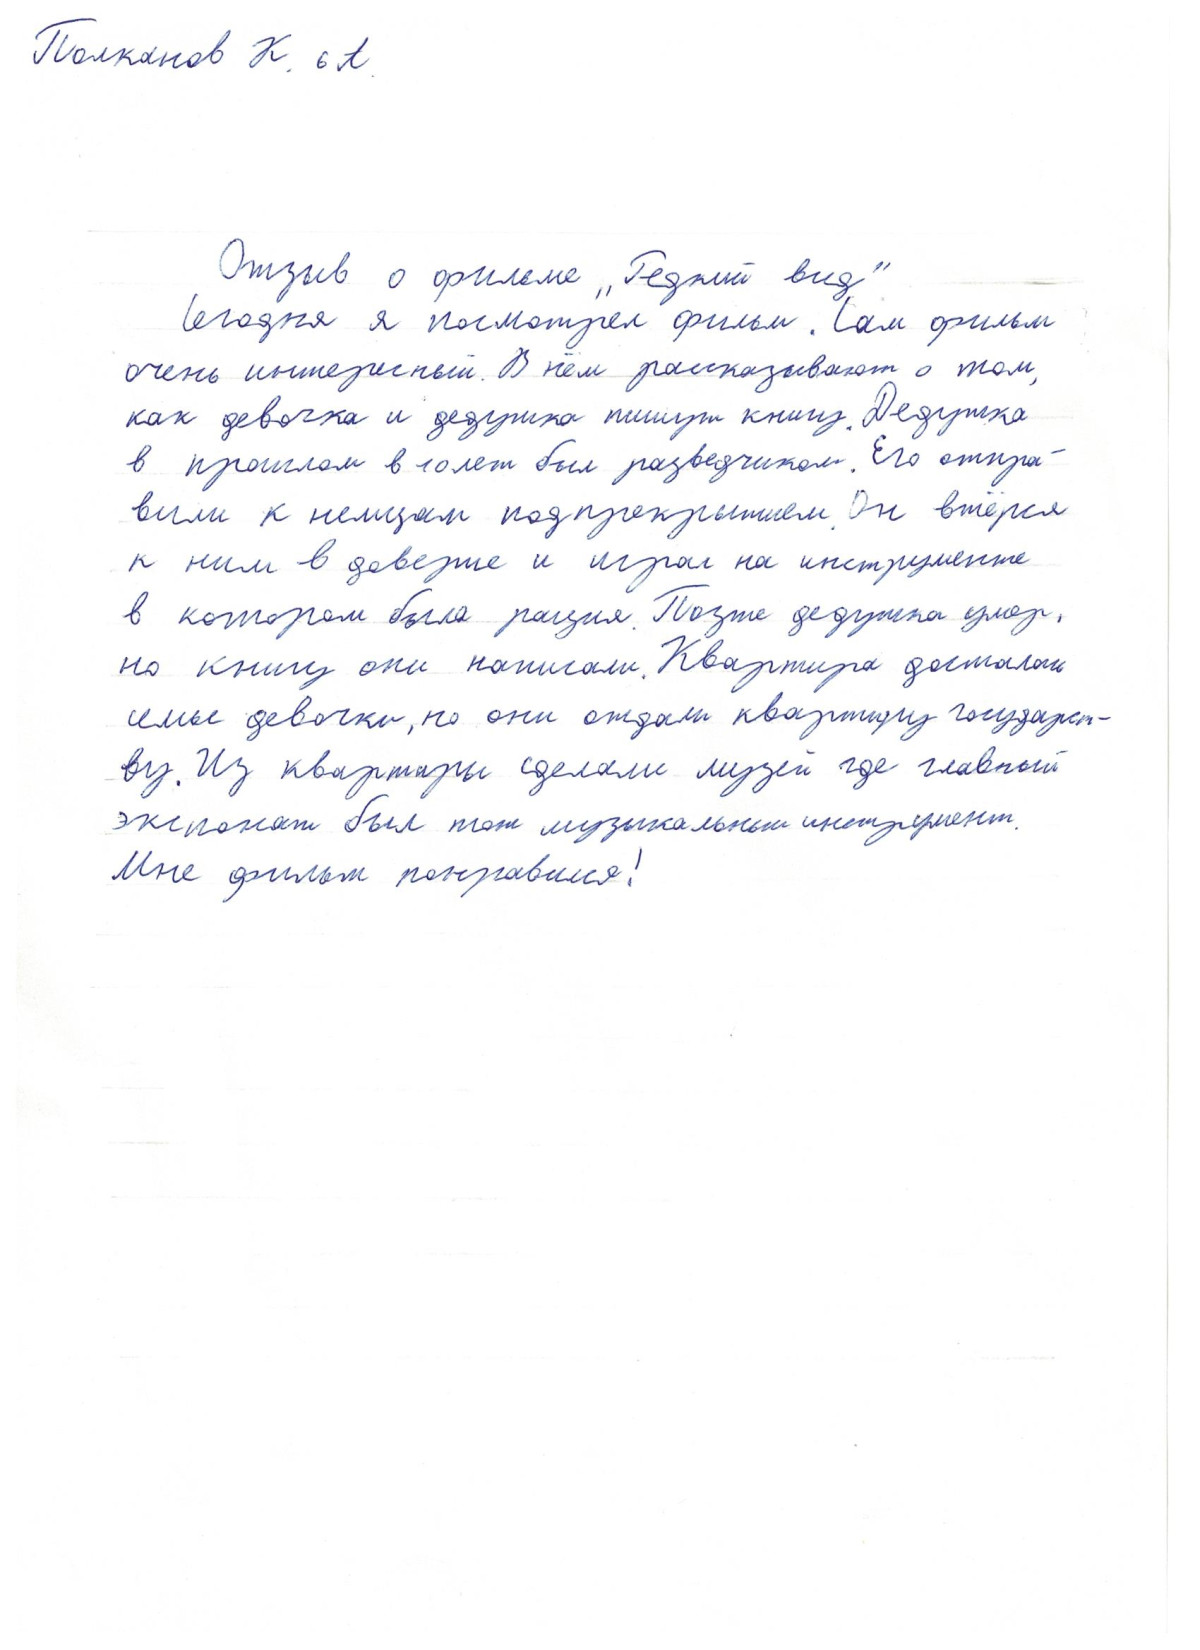 Полканов К. 6А.
Отзыв о фильме „Редкий вид"
Сегодня я посмотрел фильм. Сам фильм
очень интересный. В нём рассказывают о том,
как девочка и дедушка пишут книгу. Дедушка
в прошлом в 20 лет был разведчиком. Его отпра-
вили к немцам подпрекрытием. Он втёрся
к ним в доверие и играл на инструменте
в котором была рация. Позже дедушка умер,
но книгу они написали. Квартира досталась
семье девочки, но они отдали квартиру государст-
ву. Из квартиры сделали музей где главный
экспонат был тот музыкальный инструмент.
Мне фильм понравился!